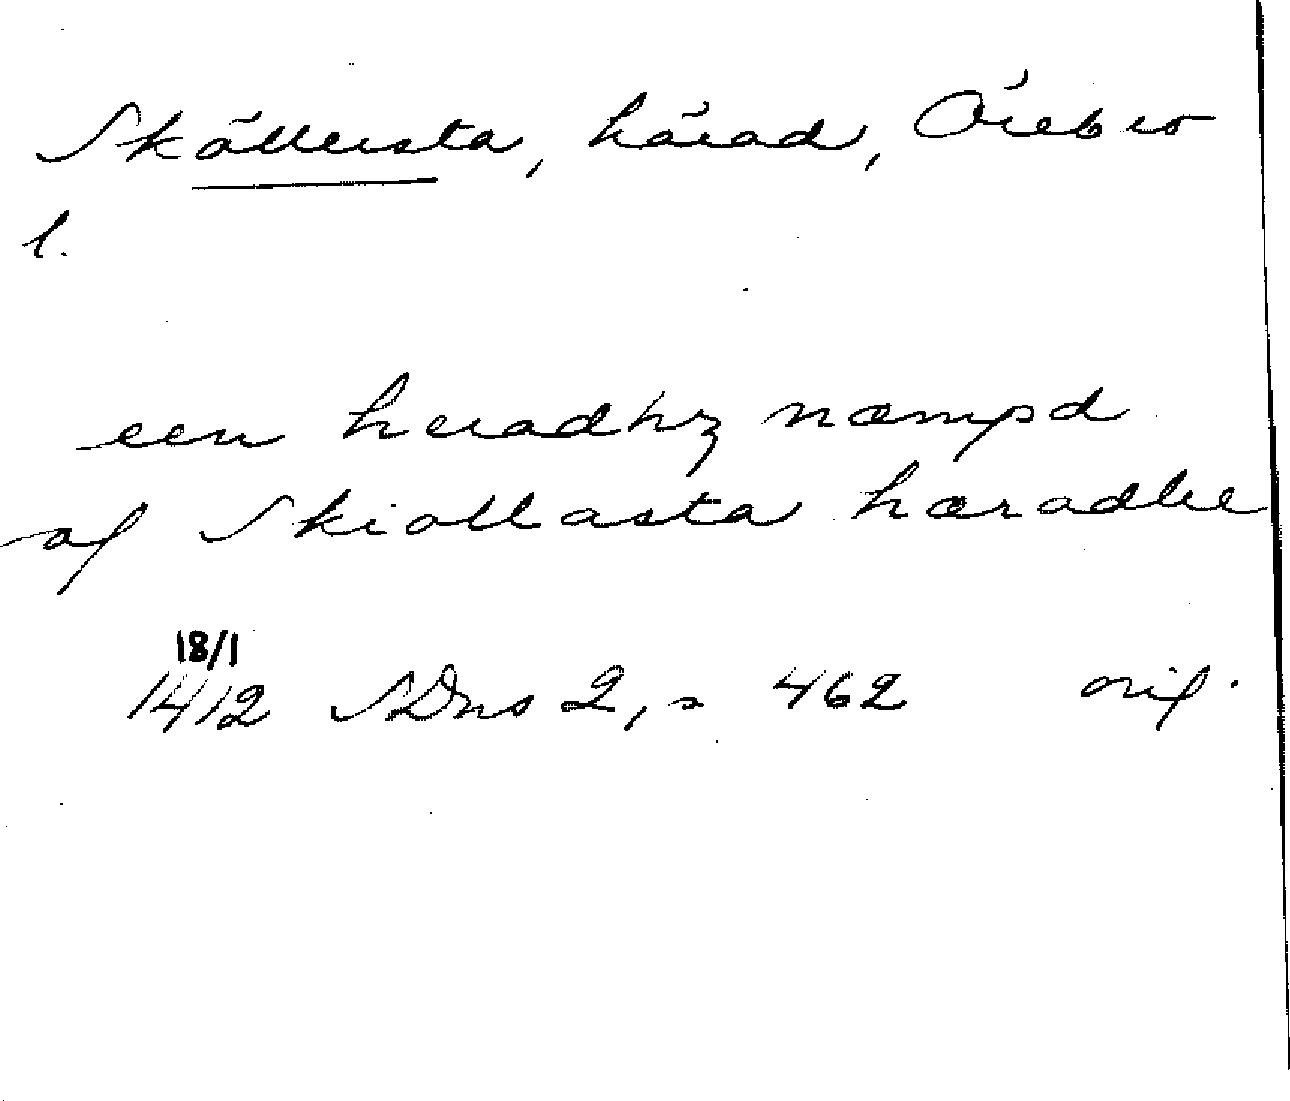 Sköllersta, härad, Örebro
l.
een heradhz næmpd
af Skiollasta hæradhe
18/1
1412 SDns 2, s 462 orig.